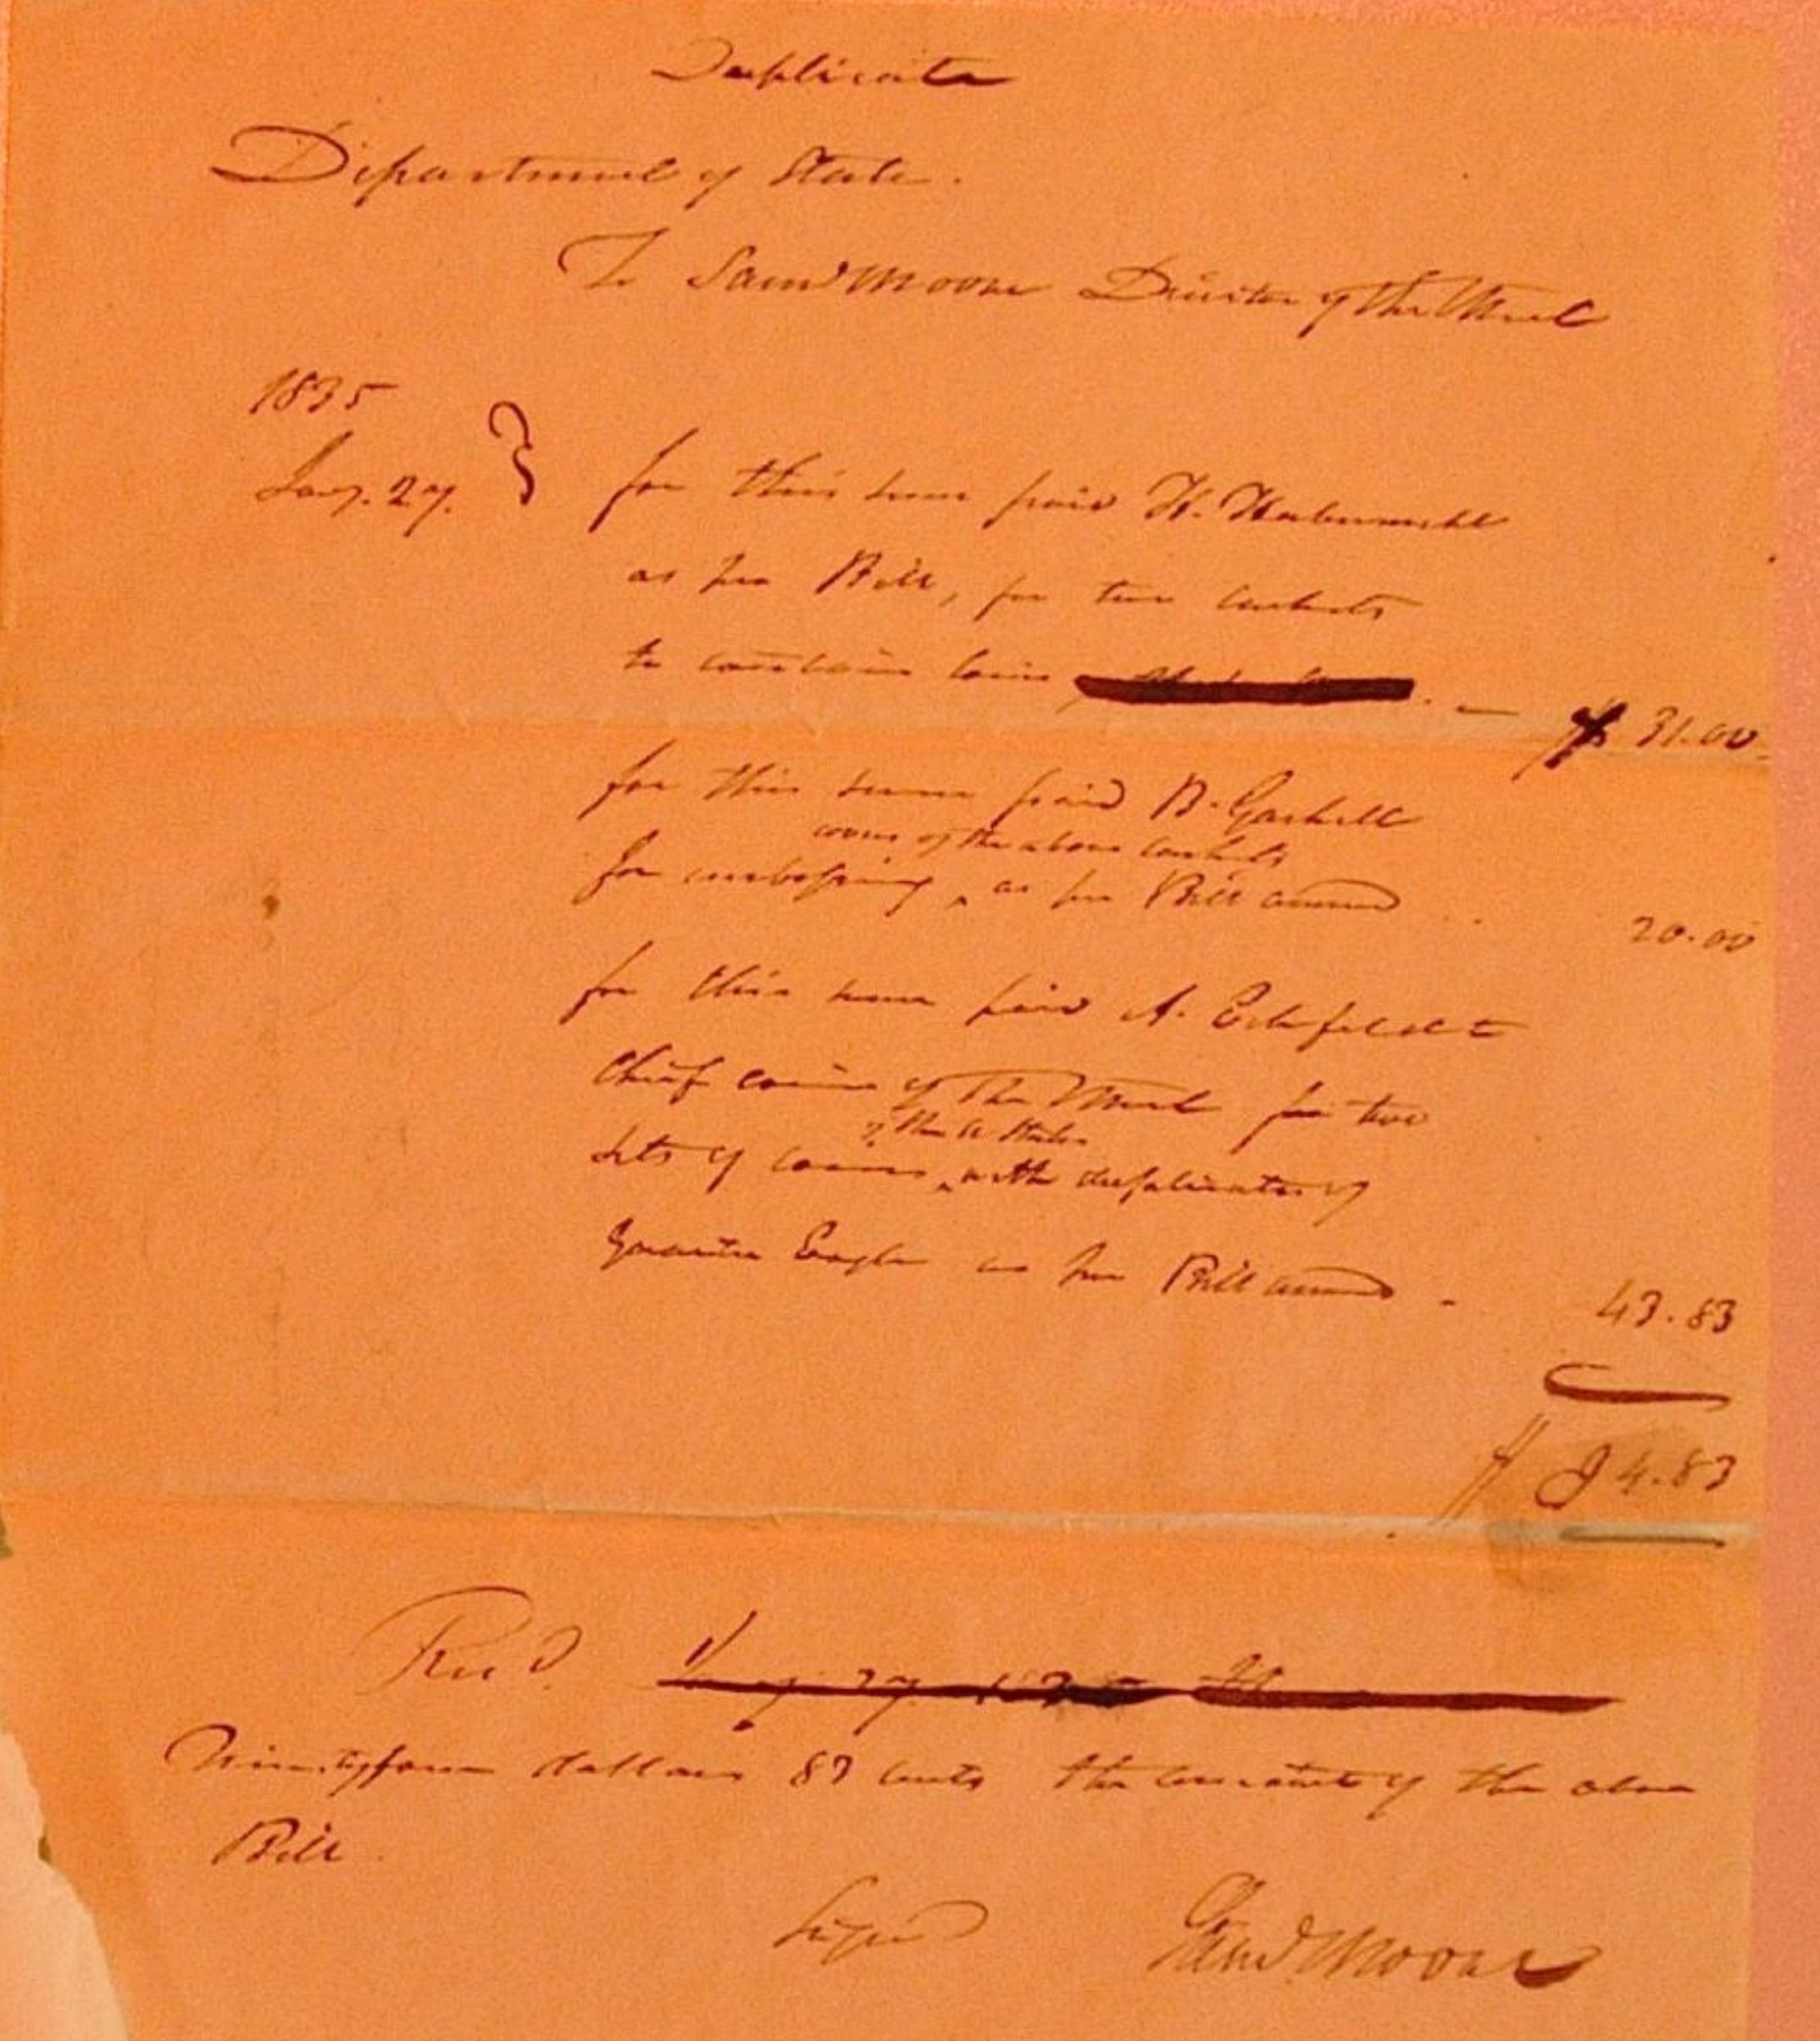 Duplicate
Department of State.
To Saml Moore Director of the Mint
1835
Jany. 27.
for this sum paid H. Habermehl
as per Bill, for two caskets
to contain coins — $ 31.00
for this sum paid B. Gaskill
covers of the above caskets
for embossing ^ as per Bill annexd .. 20.00
for this sum paid A. Eckfeldt
Chief coiner of the Mint for two
of the U States
sets of coins ^ with duplicates of
Quarter Eagle as per Bill annexd - 43.83
$ 94.83
Recd. Jany 27. 1835
Ninetyfour dollars 83 cents the amount of the above
Bill.
Signed Saml Moore